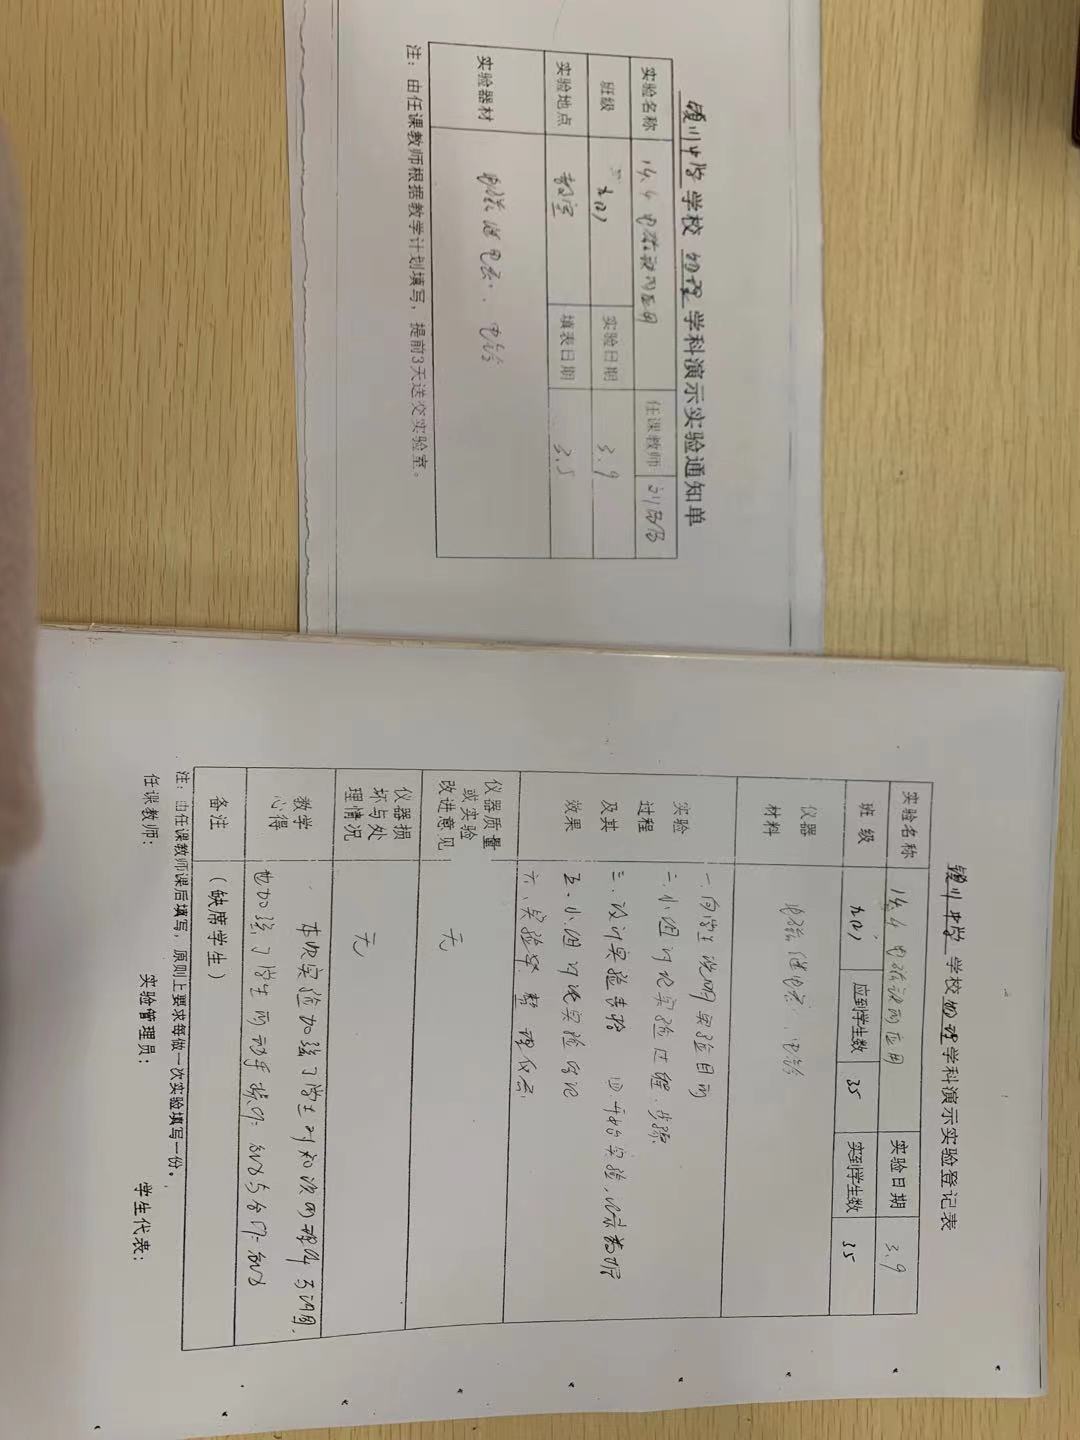 中学学校物理学科演示实验通知单
实验名称 14.4 电磁铁的应用 任课教师
班级 九(2) 实验日期 3.9
实验地点 教室 填表日期 3.5
实验器材 电磁继电器、电铃
注：由任课教师根据教学计划填写，提前3天送交实验室。
中学学校物理学科演示实验登记表
实验名称 14.4 电磁铁的应用 实验日期 3.9
班 级 九(2) 应到学生数 35 实到学生数 35
仪器材料 电磁继电器、电铃
实验过程及其效果
一、向学生说明实验目的
二、小组讨论实验过程、步骤
三、设计实验表格 四、开始实验、记录数据
五、小组讨论实验结论
六、实验毕、整理仪器
仪器质量或实验改进意见 无
仪器损坏与处理情况 无
教学心得 本次实验加强了学生对知识的理解与巩固,
也加强了学生的动手操作能力与合作能力
备注 （缺席学生）
注：由任课教师课后填写，原则上要求每做一次实验填写一份。
任课教师： 实验管理员： 学生代表：